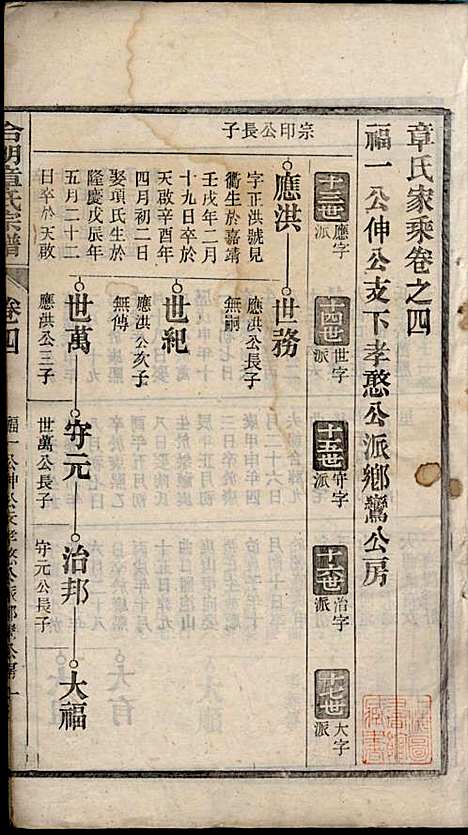 章氏家乘卷之四
福一公伸公支下孝憨公派鄉鸞公房
十三世 應字派
十四世 世字派
十五世 守字派
十六世 治字派
十七世 大字派
宗印公長子
應洪
字正洪號見
衢生於嘉靖
壬戌年二月
十九日卒於
天啟辛酉年
四月初二日
娶項氏生於
隆慶戊辰年
五月二十二
日卒於天啟
世務
應洪公長子
無嗣
世紀
應洪公次子
無傳
世萬
應洪公三子
守元
世萬公長子
治邦
守元公長子
大福
合朗章氏宗譜
卷四
福一公伸公支孝憨公派鄉鸞公房 一